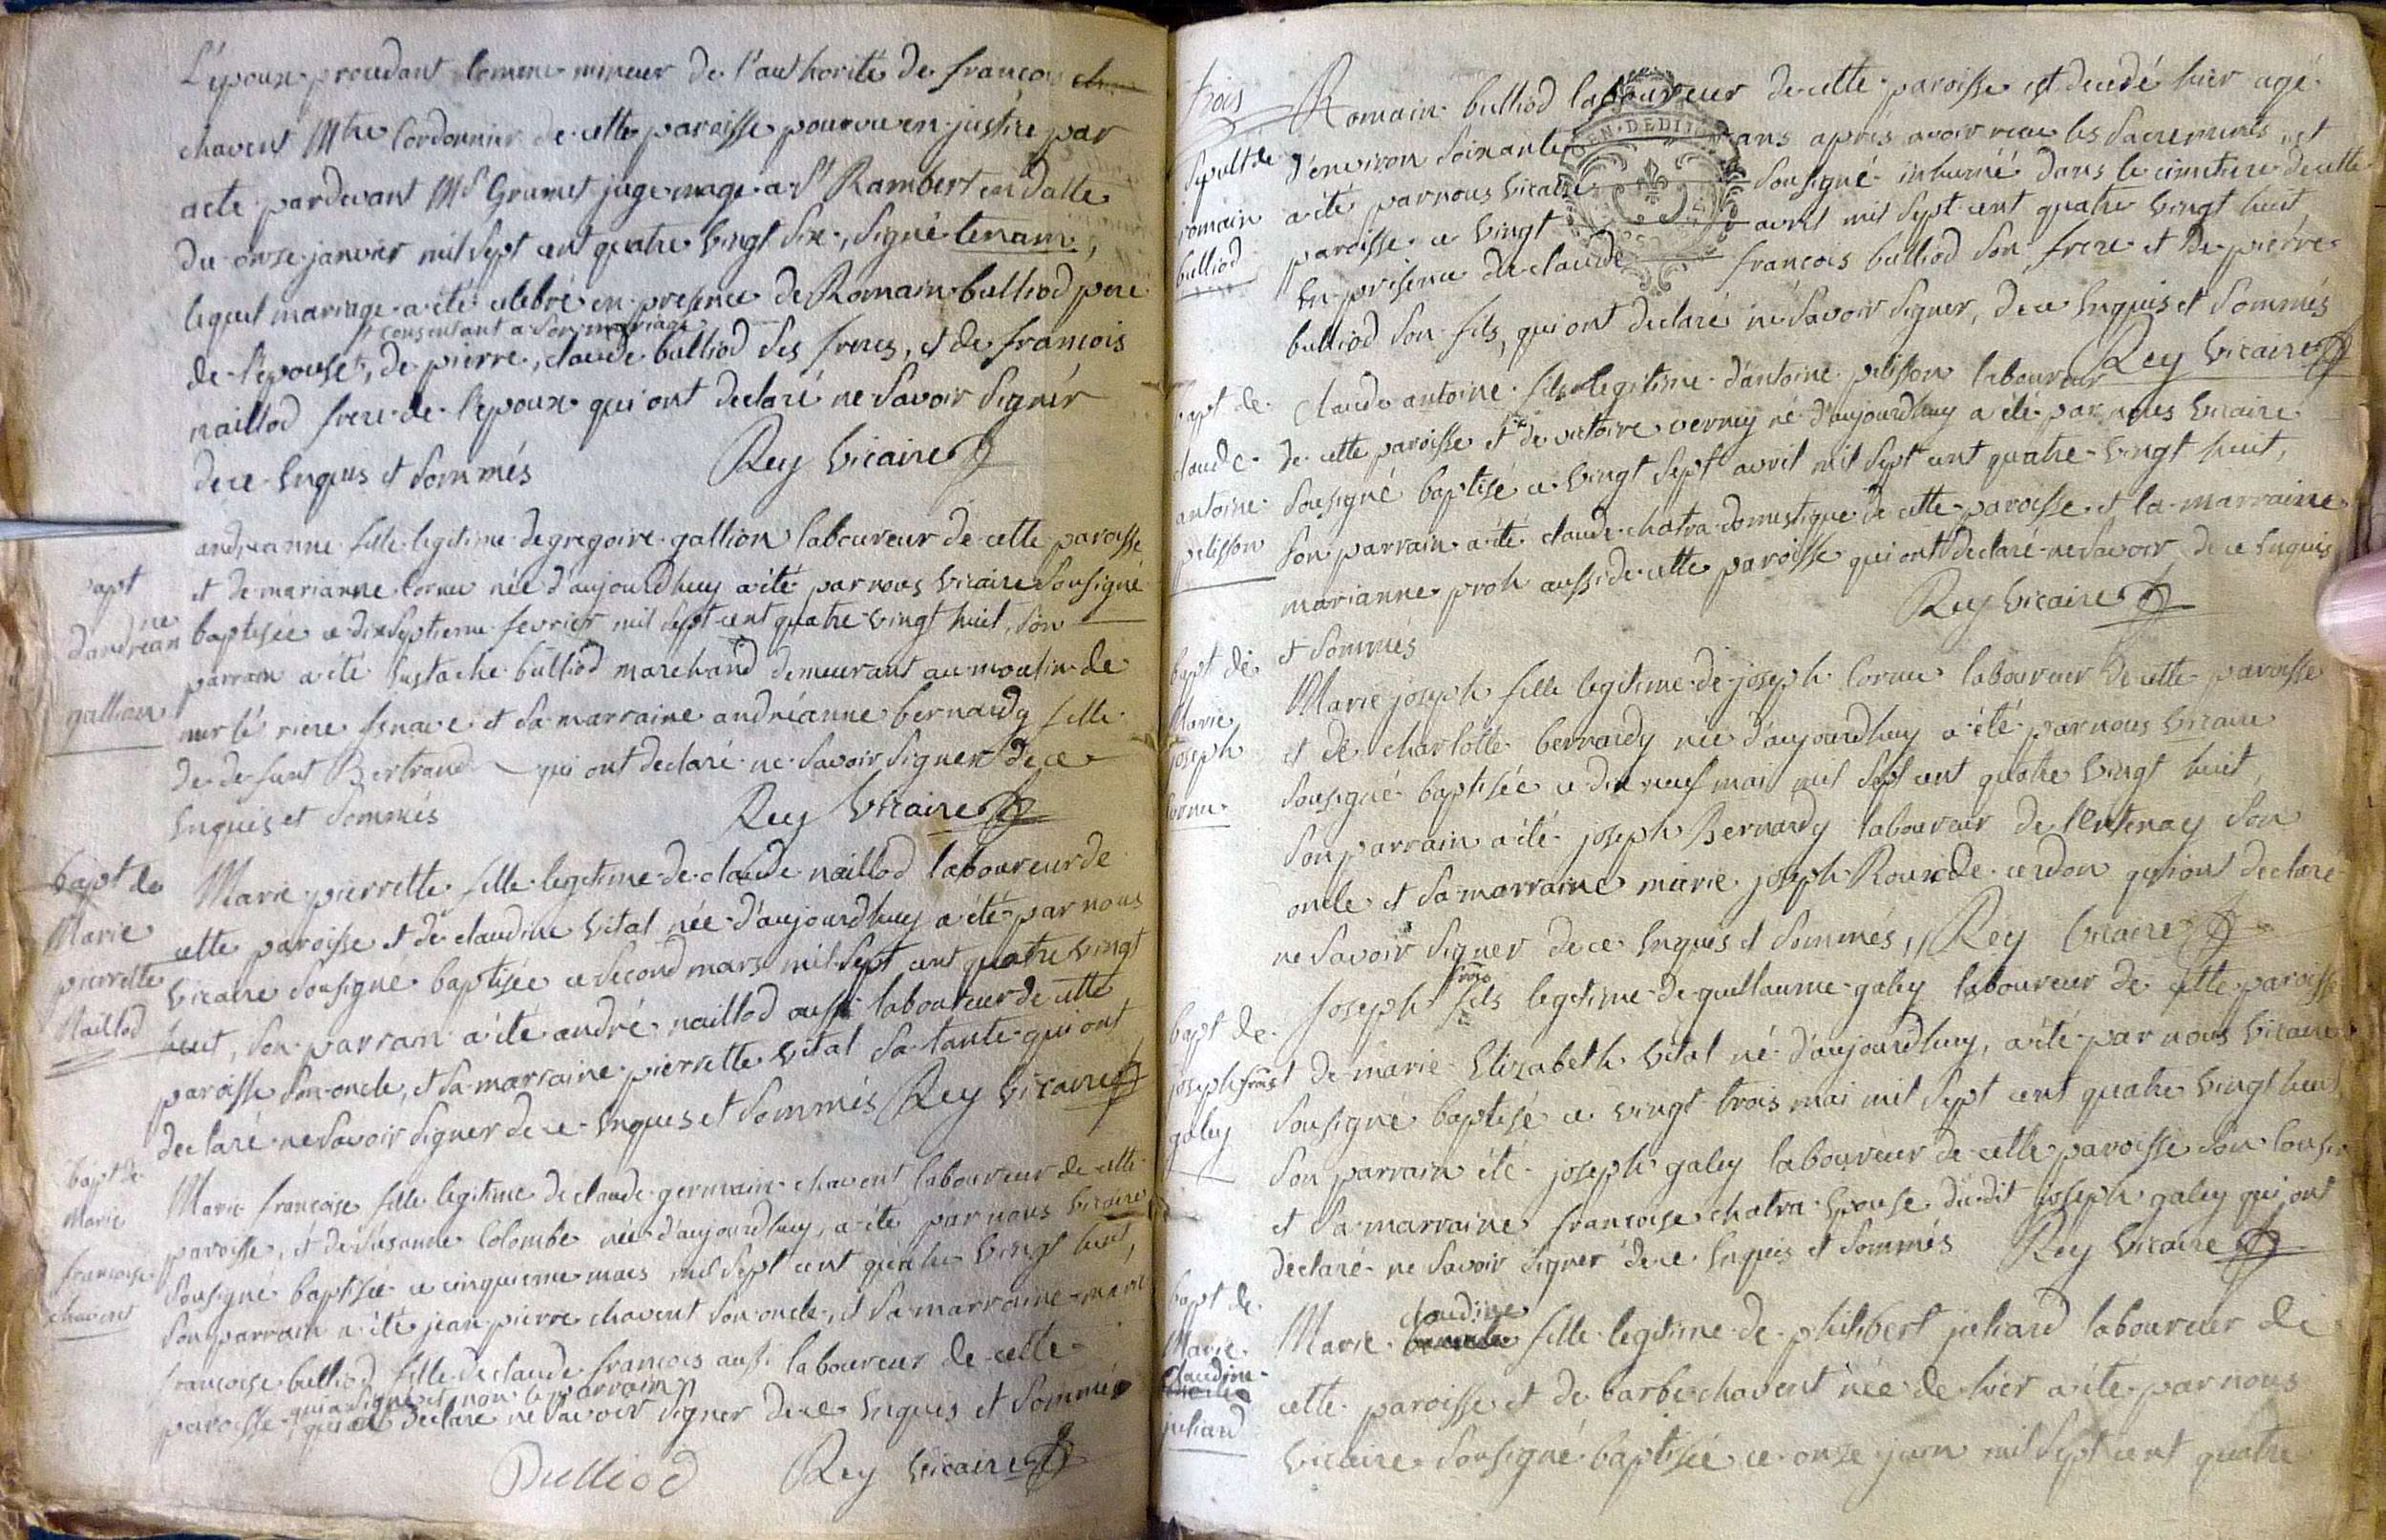 L'époux procedant comme mineur de l'authorité de françois
chavent Mtre Cordonnier de cette paroisse pourvu en justice par
acte pardevant Mr Grumet juge mage a St Rambert en datte
du onze janvier mil sept cent quatre vingt six, signé tenain,
lequel mariage a été celebré en presence de Romain bulliod pere
consentant a son mariage
de l'epouse, de pierre, claude bulliod ses freres, et de francois
naillod frere de l'epoux qui ont declaré ne savoir signér
de ce Enquis et sommés Rey vicaire
bapt
d'andréanne
gallion
andréanne fille legitime de gregoire gallion laboureur de cette paroisse
et de marianne Cornu née d'aujourdhuy a été par nous vicaire sousigné
baptisée ce dix septieme fevrier mil sept cent quatre vingt huit, son
parrain a été Eustache bulliod marchand demeurant au moulin de
riere senave et sa marraine andréanne bernardy fille
de defunt Bertrand qui ont declaré ne savoir signer de ce
Enquis et sommés Rey vicaire
bapt de
Marie
pierrette
Naillod
Marie pierrette fille legitime de claude naillod laboureur de
cette paroisse et de claudine vital née d'aujourdhuy a été par nous
vicaire sousigné baptisée ce second mars mil sept cent quatre vingt
huit, son parrain a été andré naillod aussi laboureur de cette
paroisse son oncle, et sa marraine pierrette vital sa tante qui ont
declaré ne savoir signer de ce Enquis et sommés Rey vicaire
bapt de
Marie
francoise
chavent
Marie francoise fille legitime de claude germain chavent laboureur de cette
paroisse, et de susanne Colombe née d'aujourdhuy, a été par nous vicaire
sousigné baptisée ce cinquieme mars mil sept cent quatre vingt huit,
son parrain a été jean pierre chavent son oncle, et sa marraine marie
francoise bulliod fille de claude francois aussi laboureur de cette
qui a signé et non le parrain
paroisse qui a declaré ne savoir signer de ce Enquis et sommés
Bulliod Rey vicaire
trois
sepultde
romain
bulliod
Romain bulliod laboureur de cette paroisse est decedé hier agé
d'environ soixante ans aprés avoir recu les sacrements, et
a été par nous vicaire sousigné inhumé dans le cimetiere de cette
paroisse ce vingt avril mil sept cent quatre vingt huit,
En presence de claude francois bulliod son frere et de pierre
bulliod son fils, qui ont declaré ne savoir signer, de ce Enquis et sommés
Rey vicaire
GEN. DE DIJON
bapt de
claude
antoine
pelisson
Claude antoine fils legitime d'antoine pelisson laboureur
de cette paroisse et de victoire verney né d'aujourdhuy a été par nous vicaire
sousigné baptisé ce vingt sept avril mil sept cent quatre vingt huit,
son parrain a été claude chatra domestique de cette paroisse et la marraine
marianne proh aussi de cette paroisse qui ont declaré ne savoir de ce Enquis
et sommés Rey vicaire
bapt de
Marie
joseph
Cornu
Marie joseph fille legitime de joseph Cornu laboureur de cette paroisse
et de charlotte bernardy née d'aujourdhuy a été par nous vicaire
sousigné baptisée ce dix neuf mai mil sept cent quatre vingt huit,
son parrain a été joseph Bernardy laboureur de l'Entenay son
oncle et sa marraine marie joseph Roux de cerdon qui ont declaré
ne savoir signer de ce Enquis et sommés, Rey vicaire
bapt de
joseph frois
galey
frois
Joseph fils legitime de guillaume galey laboureur de cette paroisse
et de marie Elizabeth vital né d'aujourdhuy, a été par nous vicaire
sousigné baptisé ce vingt trois mai mil sept cent quatre vingt huit,
son parrain été joseph galey laboureur de cette paroisse son cousin
et sa marraine francoise chatra Epouse du dit joseph galey qui ont
declaré ne savoir signer de ce Enquis et sommés Rey vicaire
bapt de
Marie
claudine
juliand
claudine
Marie fille legitime de philibert juliand laboureur de
cette paroisse et de barbe chavent née de hier a été par nous
vicaire sousigné baptisée ce onze juin mil sept cent quatre